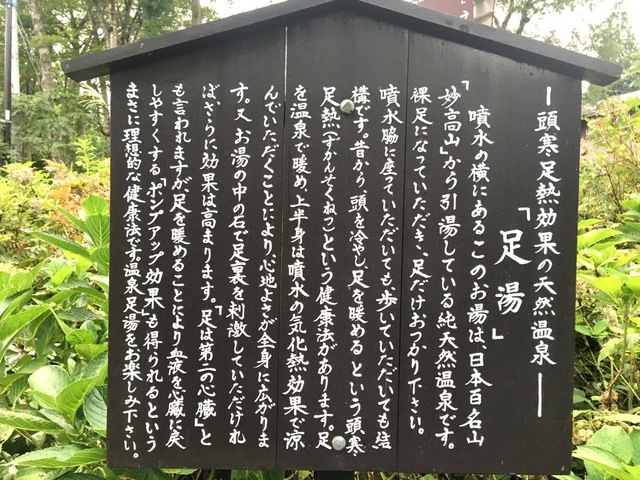 ―頭寒足熱効果の天然温泉―
「足湯」
噴水の横にあるこのお湯は、日本百名山
「妙高山」から引湯している純天然温泉です。
裸足になっていただき、足だけおつかり下さい。
噴水脇に座っていただいても、歩いていただいても結
構です。昔から、頭を冷やし、足を暖めるという、頭寒
足熱(ずかんそくねつ)という健康法があります。足
を温泉で暖め、上半身は噴水の気化熱効果で涼
んでいただくことにより、心地よさが全身に広がりま
す。又、お湯の中の石で足裏を刺激していただけれ
ば、さらに効果は高まります。「足は第二の心臓」と
も言われますが、足を暖めることにより血液を心臓に戻
しやすくする「ポンプアップ効果」も得られるという
まさに理想的な健康法です。温泉足湯をお楽しみ下さい。